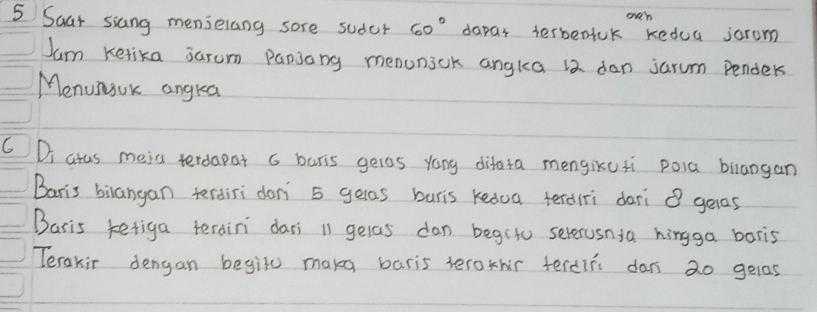 5 Saat siang menjelang sore sudut 60° dapat terbentuk oleh kedua jarum
Jam ketika jarum Panjang menunjuk angka 12 dan jarum Pendek
Menunjuk angka
6 Di atas meja terdapat 6 baris gelas yang ditata mengikuti Pola bilangan
Baris bilangan terdiri dari 5 gelas baris kedua terdiri dari 8 gelas
Baris ketiga terdiri dari 11 gelas dan begitu seterusnya hingga baris
Terakir dengan begitu maka baris terakhir terdiri dari 20 gelas